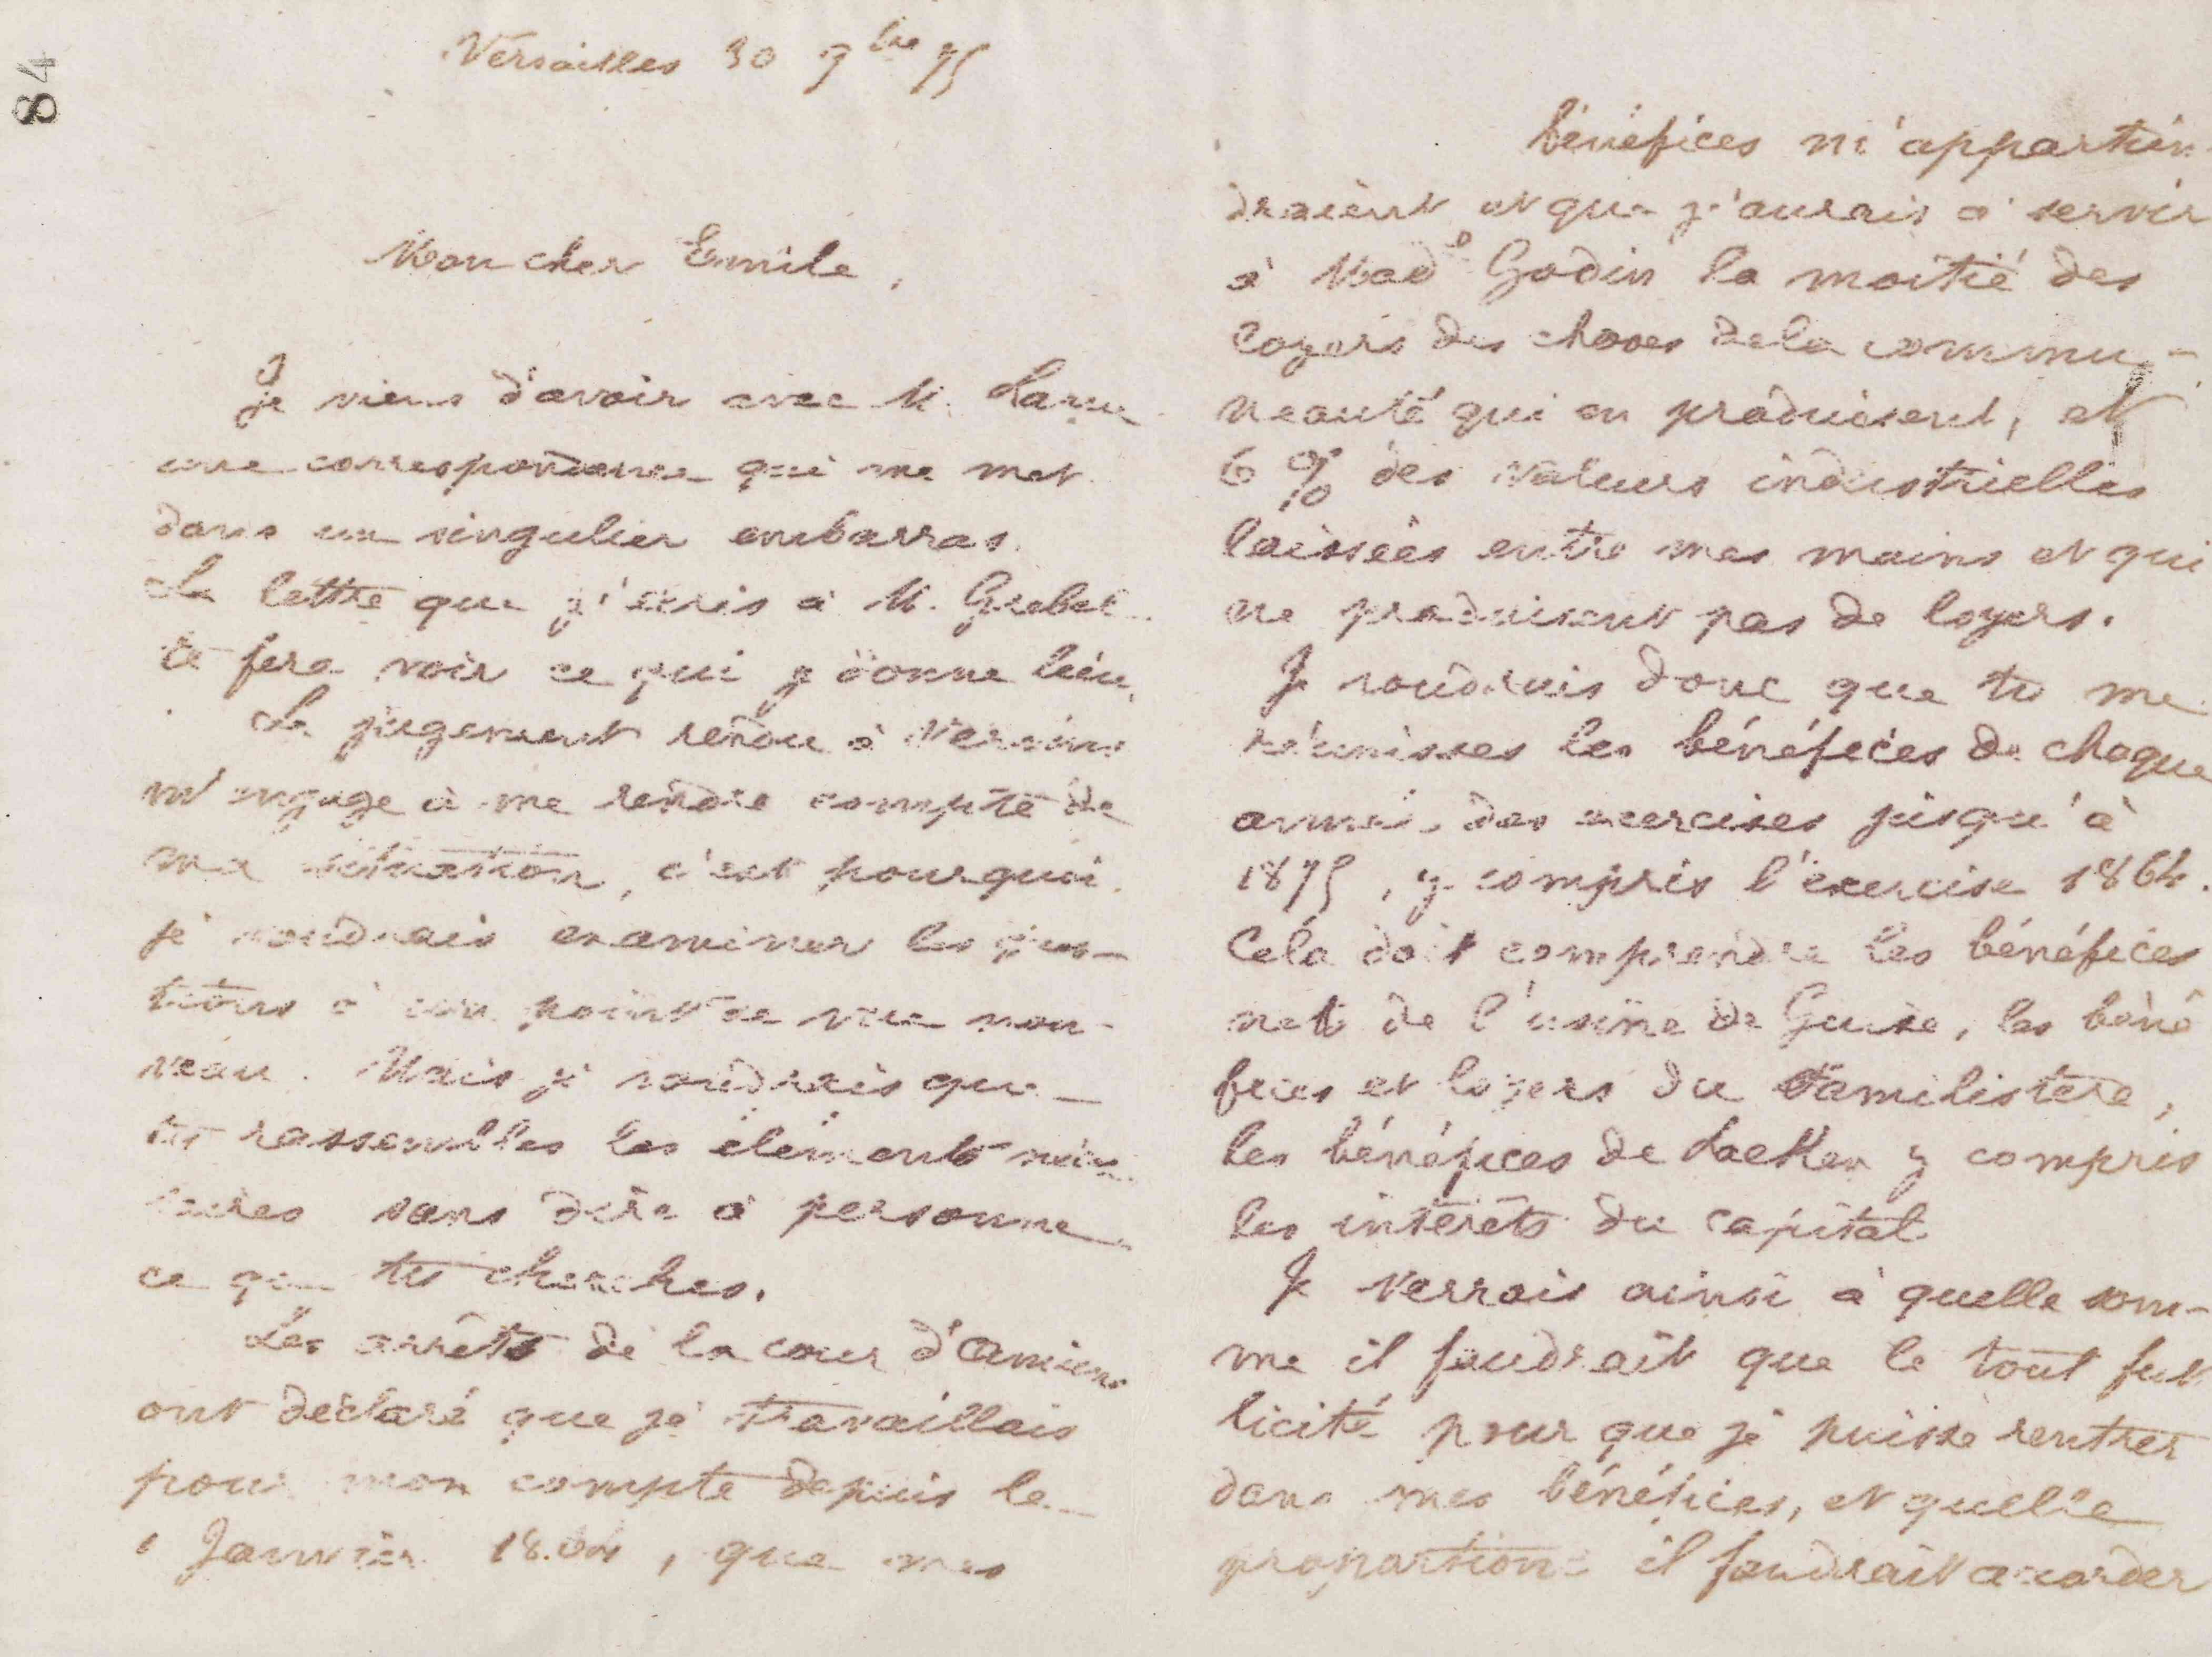 84
Versailles 30 9bre 75
Mon cher Emile,
Je viens d'avoir avec M. Larue
une correspondance qui me met
dans un singulier embarras.
La lettre que j'écris à M. Grebel
te fera voir ce qui y donne lieu.
Le jugement rendu à Vervins
m'engage à me rendre compte de
ma situation, c'est pourquoi
je voudrais examiner les ques-
tions à un point de vue nou-
veau. Mais je voudrais que
tu rassembles les éléments néces
saires sans dire à personne
ce que tu cherches.
Les arrêts de la cour d'Amiens
ont déclaré que je travaillais
pour mon compte depuis le
1 Janvier 1864, que mes
bénéfices m'appartien
draient et que j'aurais à servir
à Made Godin la moitié des
loyers des choses de la commu-
neauté qui en produisent, et
6 % des valeurs industrielles
laissées entre mes mains et qui
ne produisent pas de loyers.
Je voudrais donc que tu me
réunisses les bénéfices de chaque
année des exercises jusqu'à
1875, y compris l'exercise 1864.
Cela doit comprendre les bénéfices
net de l'usine de Guise, les béné
fices et loyers du Familistère,
les bénéfices de Laeken y compris
les intérêts du capital.
Je verrais ainsi à quelle som-
me il faudrait que le tout fut
licité pour que je puisse rentrer
dans mes bénéfices, et quelle
proportion il faudrait accorder